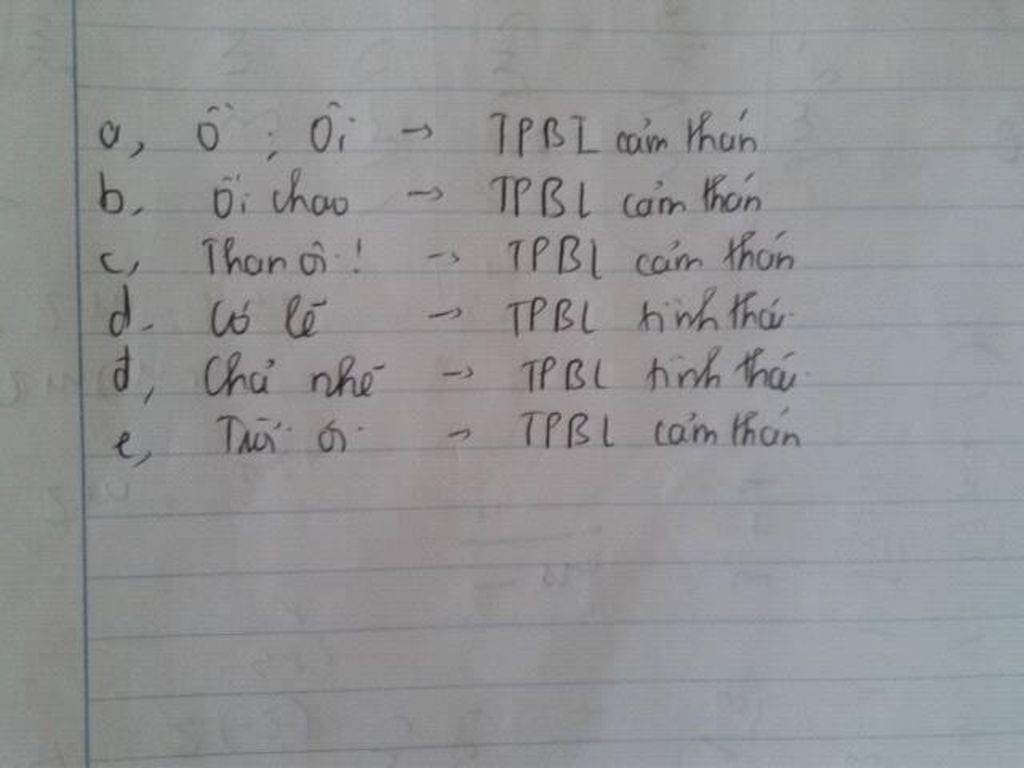 a, Ồ ; Ôi → TPBL cảm thán
b. Ôi chao → TPBL cảm thán
c, Than ôi! → TPBL cảm thán
d. Có lẽ → TPBL tình thái
đ, Chả nhẽ → TPBL tình thái
e, Trời ơi → TPBL cảm thán